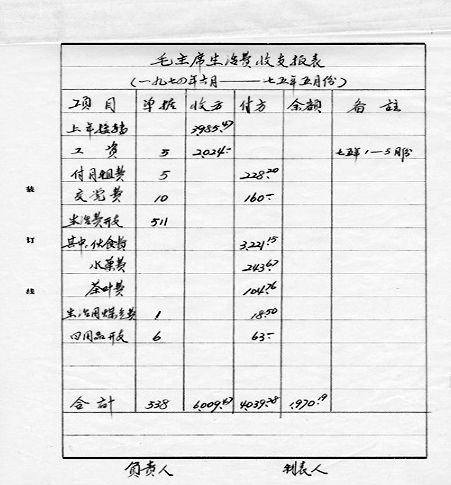 毛主席生活费收支报表
(一九七四年六月——七五年五月份)
项目 单据 收方 付方 余额 备註
上年结存 3985.47
工资 5 2,024.- 七五年1—5月份
付月租费 5 228.20
交党费 10 160.-
生活费开支 511
其中:伙食费 3,221.15
水菓费 243.67
茶叶费 104.76
生活用煤气费 1 18.50
日用品开支 6 63.-
合计 538 6,009.47 4,039.28 1,970.19
负责人 制表人
装
订
线